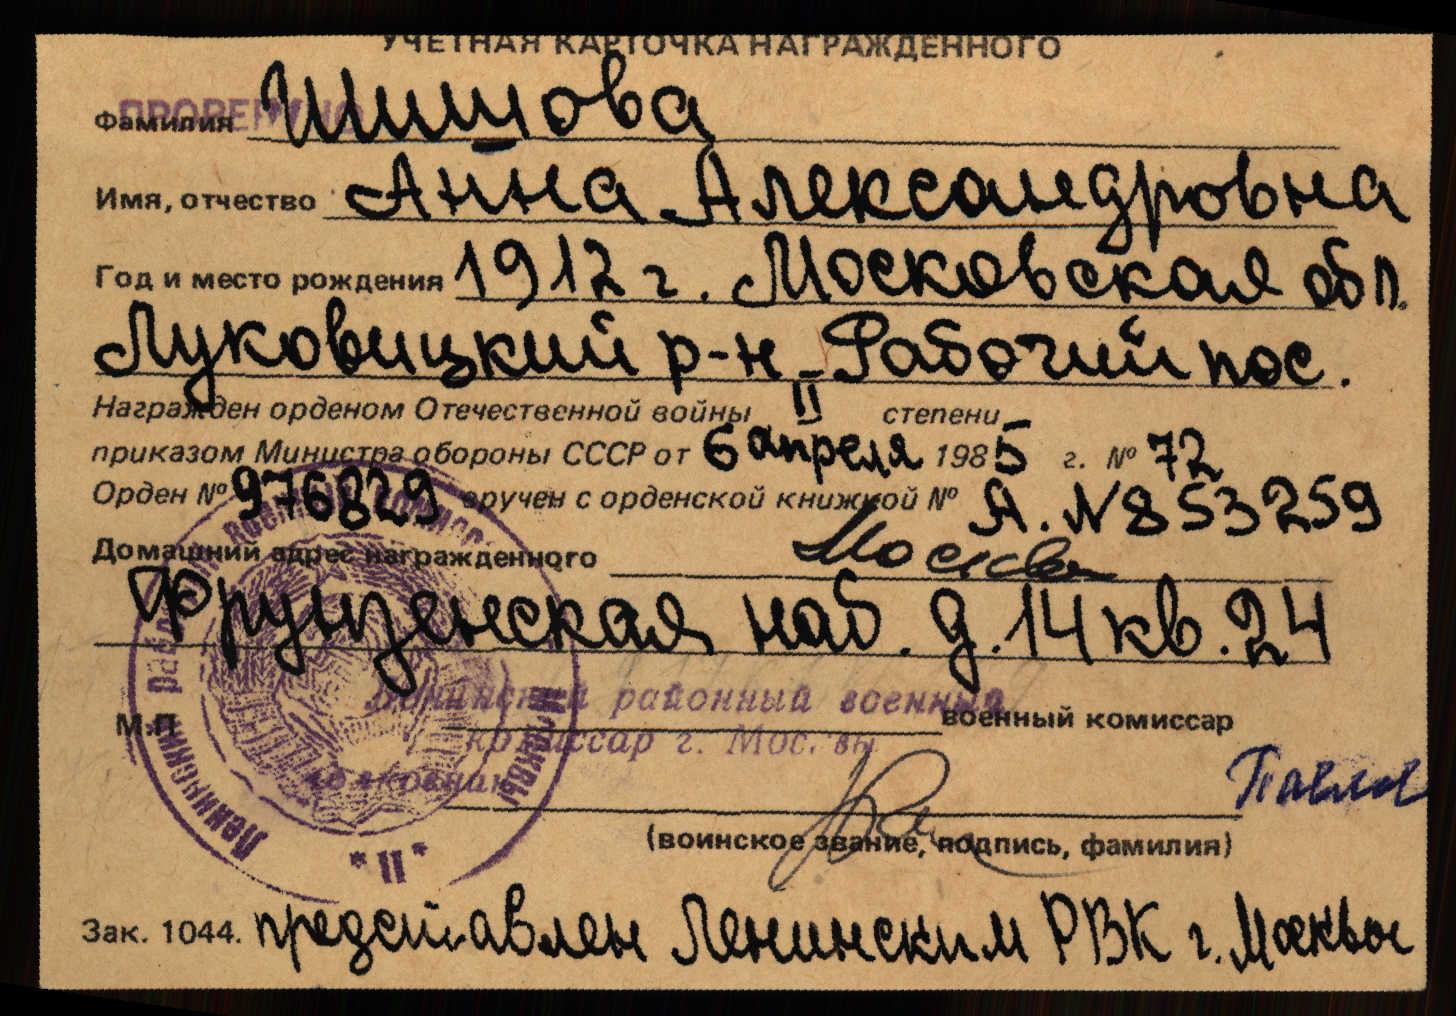 УЧЕТНАЯ КАРТОЧКА НАГРАЖДЕННОГО
ПРОВЕРЕНО
Фамилия Шишова
Имя, отчество Анна Александровна
Год и место рождения 1912 г. Московская обл.
Луковицкий р-н Рабочий пос.
Награжден орденом Отечественной войны II степени
приказом Министра обороны СССР от 6 апреля 1985 г. № 72
Орден № 976829 вручен с орденской книжкой № А. N 853259
Домашний адрес награжденного Москва
Фрунзенская наб. д. 14 кв. 24
Ленинский районный военный
М.П военный комиссар
комиссар г. Москвы
полковник
Павлов
(воинское звание, подпись, фамилия)
* II *
Зак. 1044. представлен Ленинским РВК г. Москвы